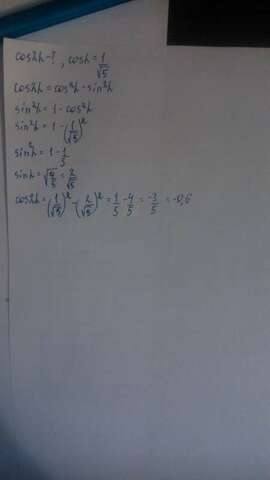 cos2α-?, cosα=1/√5
cos2α=cos²α-sin²α
sin²α=1-cos²α
sin²α=1-(1/√5)²
sin²α=1-1/5
sinα=√4/5=2/√5
cos2α=(1/√5)²-(2/√5)²=1/5-4/5=-3/5=-0,6